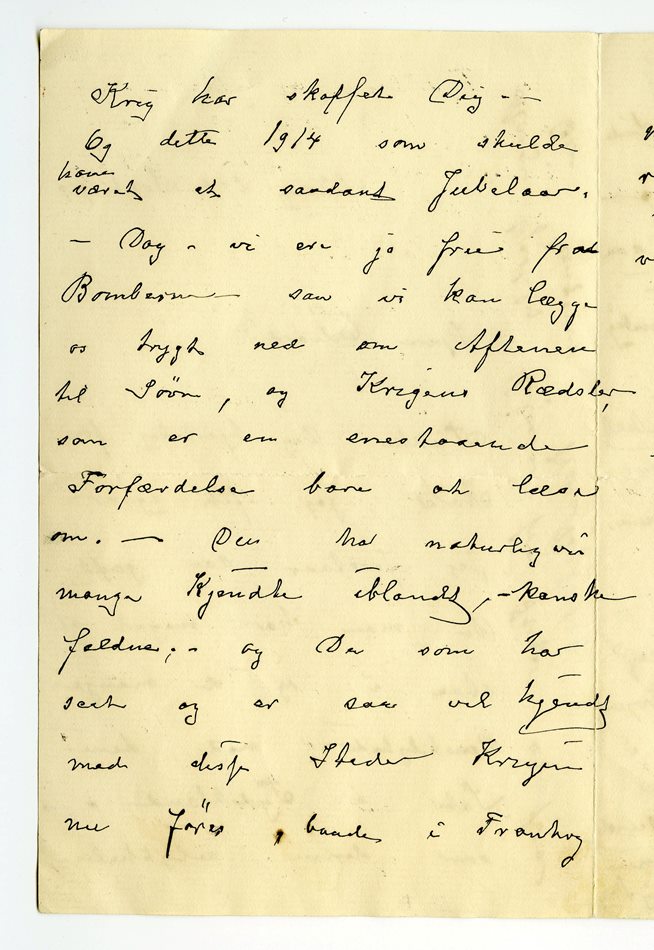 Krig har skaffet Dig. —
Og dette 1914 som skulde
have
været et saadant Jubelaar.
— Dog - vi ere jo frie fra
Bomberne saa vi kan lægge
os trygt ned om Aftenen
til Søvn, og Krigens Rædsler,
som er en enestaaende
Forfærdelse bare at læse
om. — Du har naturligvis
mange Kjendte iblandt, - kanske
faldne; - og Du som har
seet og er saa vel kjendt
med disse Steder Krigen
nu føres, baade i Frankrig